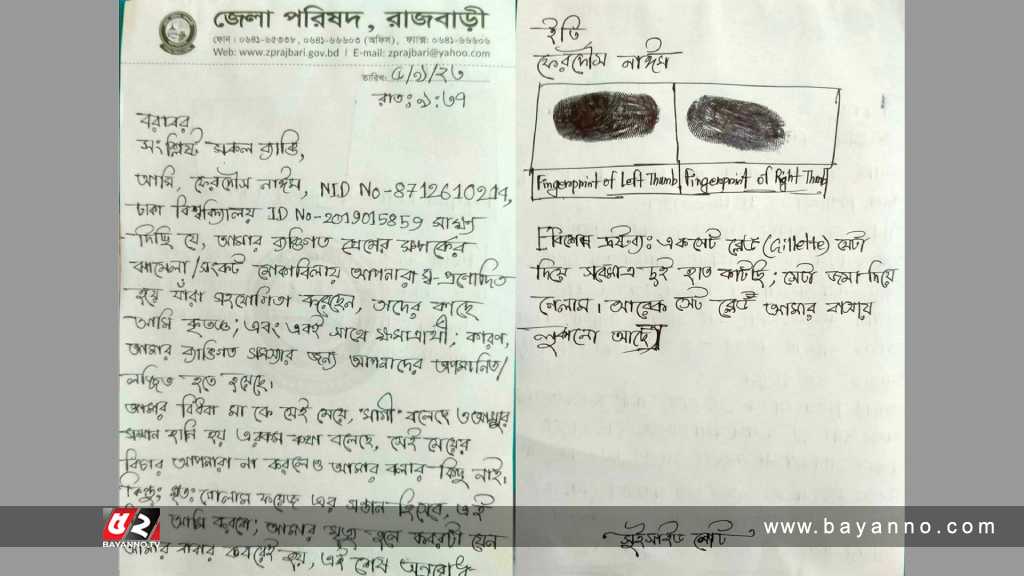 জেলা পরিষদ, রাজবাড়ী
ফোন : ০৬৪১-৬৫৩৩৮, ০৬৪১-৬৬৬০৩ (অফিস), ফ্যাক্স: ০৬৪১-৬৬৬০৬
Web: www.zprajbari.gov.bd | E-mail: zprajbari@yahoo.com
তারিখ: ৫/১/২৩
রাত: ১:৩৭
বরাবর
সংশ্লিষ্ট সকল ব্যক্তি,
আমি, ফেরদৌস নাঈম, NID No-8712610214,
ঢাকা বিশ্ববিদ্যালয় ID No-2019015859 সাক্ষ্য
দিচ্ছি যে, আমার ব্যক্তিগত প্রেমের সম্পর্কের
ঝামেলা/সংকট মোকাবিলায় আপনারা স্ব-প্রণোদিত
হয়ে যাঁরা সহযোগিতা করেছেন, তাদের কাছে
আমি কৃতজ্ঞ; এবং একই সাথে ক্ষমাপ্রার্থী; কারণ,
আমার ব্যক্তিগত সমস্যার জন্য আপনাদের অপমানিত/
লজ্জিত হতে হয়েছে।
আমার বিধবা মা কে যেই মেয়ে, "মাগী" বলেছে ও আম্মুর
সম্মান হানি হয় এরকম কথা বলেছে, সেই মেয়ের
বিচার আপনারা না করলেও আমার বলার কিছু নাই।
কিন্তু; মৃত: গোলাম এর সন্তান হিসেবে, এই
আমি করবো; আমার মৃত্যু হলে কবরটা যেন
আমার বাবার কবরেই হয়, এই শেষ অনুরোধ
ইতি
ফেরদৌস নাঈম
Fingerprint of Left Thumb
Fingerprint of Right Thumb
[বিশেষ দ্রষ্টব্য: একসেট ব্লেড (Gillette) সেটা
দিয়ে সবেমাত্র দুই হাত কাটছি; সেটা জমা দিয়ে
গেলাম। আরেক সেট ব্লেড আমার বাসায়
লুকানো আছে]
সুইসাইড নোট
৫২
BAYANNO TV
www.bayanno.com